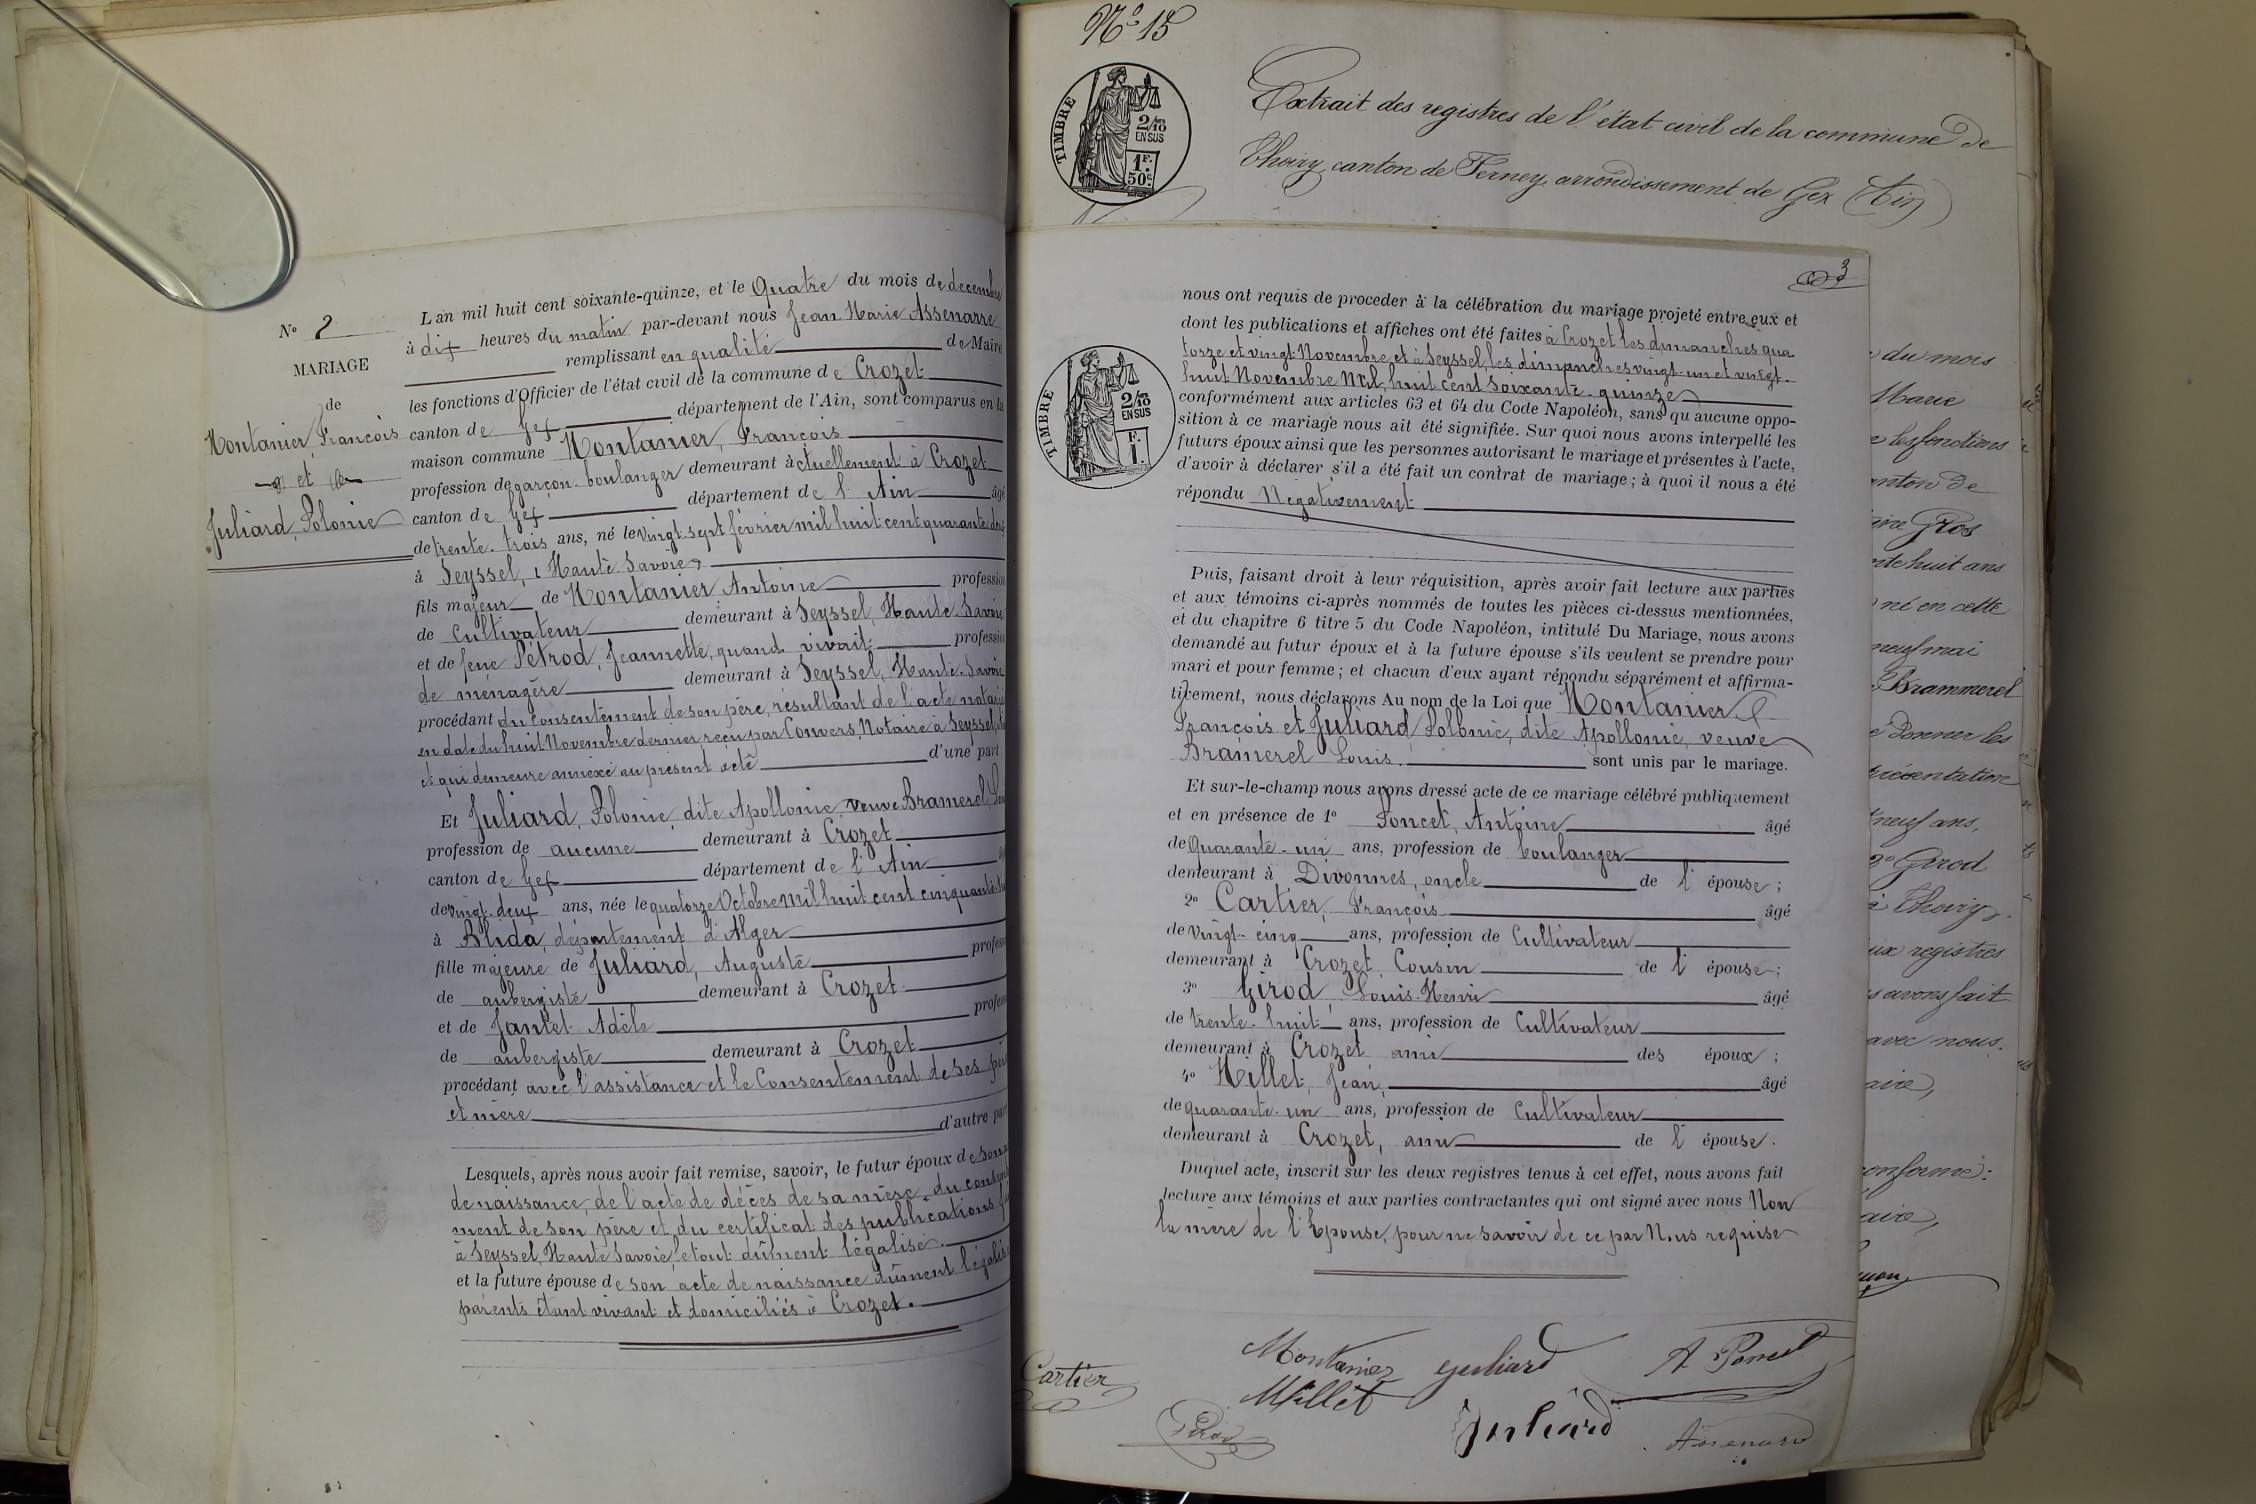 Nº 2
MARIAGE
de
Montanier, François
et
Juliard, Polonie
L'an mil huit cent soixante-quinze, et le Quatre du mois de décembre
à dix heures du matin par-devant nous Jean Marie Assenarre
remplissant en qualité de Maire
les fonctions d'Officier de l'état civil de la commune de Crozet
canton de Gex département de l'Ain, sont comparus en la
maison commune Montanier, François
profession de garçon-boulanger demeurant actuellement à Crozet
canton de Gex département de l'Ain âgé
de trente-trois ans, né le vingt-sept février mil huit cent quarante-deux
à Seyssel, (Haute-Savoie)
fils majeur de Montanier Antoine profession
de cultivateur demeurant à Seyssel, Haute-Savoie
et de feue Pétrod, Jeannette, quand vivait profession
de ménagère demeurant à Seyssel, Haute-Savoie
procédant du consentement de son père, résultant de l'acte notarié
en date du huit Novembre dernier reçu par Convers, Notaire à Seyssel,
et qui demeure annexé au présent acte d'une part
Et Juliard, Polonie, dite Apollonie, veuve Bramerel, Louis
profession de aucune demeurant à Crozet
canton de Gex département de l'Ain
de vingt-deux ans, née le quatorze Octobre mil huit cent cinquante
à Blida, département d'Alger
fille majeure de Juliard, Auguste profession
de aubergiste demeurant à Crozet
et de Jantet Adèle profession
de aubergiste demeurant à Crozet
procédant avec l'assistance et le Consentement de ses père
et mère d'autre part
Lesquels, après nous avoir fait remise, savoir, le futur époux de son acte
de naissance, de l'acte de décès de sa mère, du consente
ment de son père et du certificat des publications
à Seyssel, Haute Savoie, le tout dûment légalisé.
et la future épouse de son acte de naissance dûment légalisé
parents étant vivant et domiciliés à Crozet.
Nº 15
TIMBRE
2/10 EN SUS
1F. 50c.
Extrait des registres de l'état civil de la commune de
Thoiry, canton de Ferney, arrondissement de Gex (Ain)
3
TIMBRE
2/10 EN SUS
1 F.
nous ont requis de proceder à la célébration du mariage projeté entre eux et
dont les publications et affiches ont été faites à Crozet les dimanches qua
torze et vingt Novembre, et à Seyssel, les dimanches vingt-un et vingt-
huit Novembre Mil huit cent soixante-quinze
conformément aux articles 63 et 64 du Code Napoléon, sans qu'aucune oppo-
sition à ce mariage nous ait été signifiée. Sur quoi nous avons interpellé les
futurs époux ainsi que les personnes autorisant le mariage et présentes à l'acte,
d'avoir à déclarer s'il a été fait un contrat de mariage; à quoi il nous a été
répondu Négativement
Puis, faisant droit à leur réquisition, après avoir fait lecture aux parties
et aux témoins ci-après nommés de toutes les pièces ci-dessus mentionnées,
et du chapitre 6 titre 5 du Code Napoléon, intitulé Du Mariage, nous avons
demandé au futur époux et à la future épouse s'ils veulent se prendre pour
mari et pour femme; et chacun d'eux ayant répondu séparément et affirma-
tivement, nous déclarons Au nom de la Loi que Montanier
François et Juliard, Polonie, dite Apollonie, veuve
Bramerel Louis. sont unis par le mariage.
Et sur-le-champ nous avons dressé acte de ce mariage célébré publiquement
et en présence de 1º Poncet, Antoine âgé
de quarante-un ans, profession de boulanger
demeurant à Divonnes, oncle de l'épouse;
2º Cartier, François âgé
de vingt-cinq ans, profession de Cultivateur
demeurant à Crozet, Cousin de l'épouse;
3º Girod Louis-Henri âgé
de trente-huit ans, profession de Cultivateur
demeurant à Crozet ami des époux;
4º Millet, Jean, âgé
de quarante-un ans, profession de Cultivateur
demeurant à Crozet, ami de l'épouse.
Duquel acte, inscrit sur les deux registres tenus à cet effet, nous avons fait
lecture aux témoins et aux parties contractantes qui ont signé avec nous Non
la mère de l'Epouse, pour ne savoir de ce par Nous requise
Montanier Juliard A Poncet
Cartier
Millet
Girod Juliard
du mois
Marie
les fonctions
canton de
Gros
huit ans
né en cette
neuf mai
Brammerel
donner les
présentation
neuf ans,
Girod
à Thoiry,
aux registres
avons fait
avec nous.
conforme: